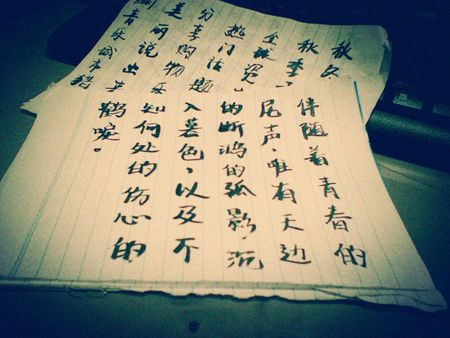 秋冬
秋季、
全球资
热门话题
分享购物
美丽说出
伴随着青春的
尾声，唯有天边
的断鸿的孤影，沉
入暮色，以及不
知何处的伤心的
鹤唳。